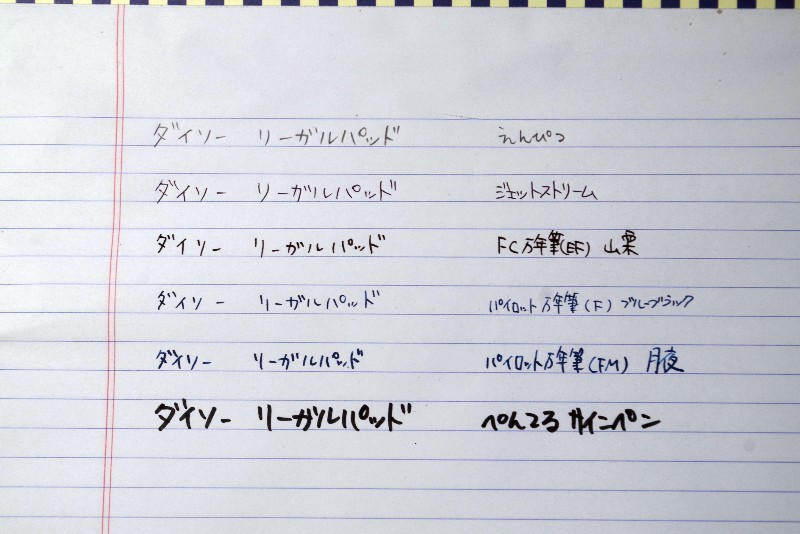 ダイソー リーガルパッド えんぴつ
ダイソー リーガルパッド ジェットストリーム
ダイソー リーガルパッド FC万年筆(EF) 山栗
ダイソー リーガルパッド パイロット万年筆(F) ブルーブラック
ダイソー リーガルパッド パイロット万年筆(FM) 月夜
ダイソー リーガルパッド ぺんてる サインペン